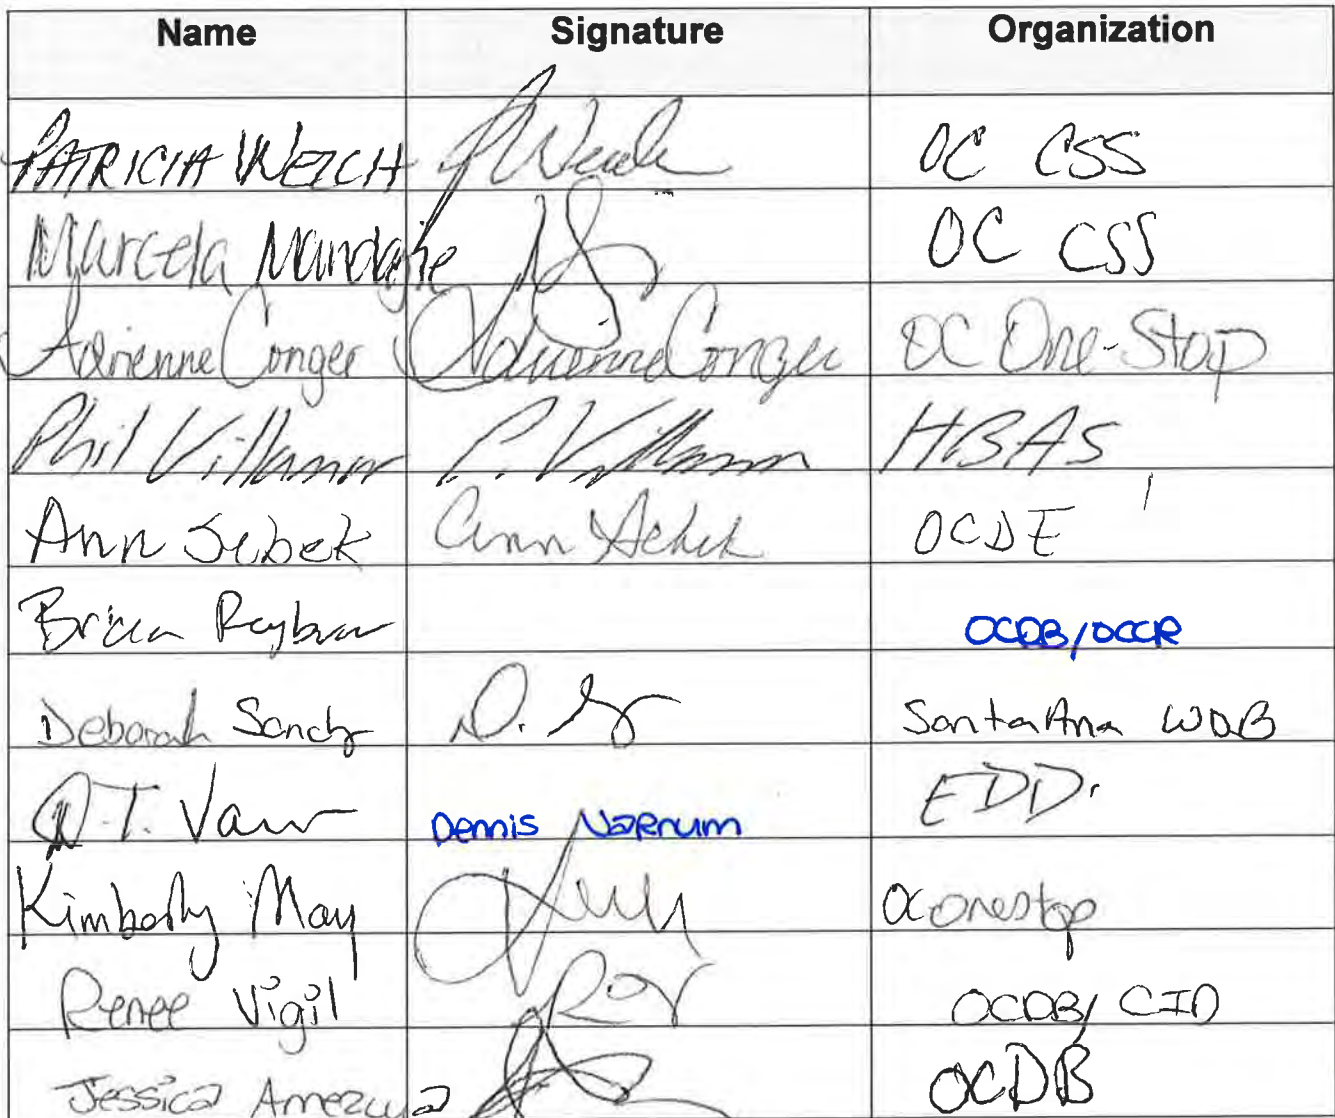 Name Signature Organization
PATRICIA WELCH OC CSS
Marcela Mandajie OC CSS
Adrienne Conger Adrienne Conger OC One-Stop
Phil Villamor P. Villamor HBAS
Ann Sebek Ann Sebek OCDE
Brian Rayburn OCDB/OCCR
Deborah Sanchz D. Santa Ana WDB
D.T. Varn Dennis Varnum EDD.
Kimberly May OC onestop
Renee Vigil OCDB/ CID
Jessica Amezcua OCDB